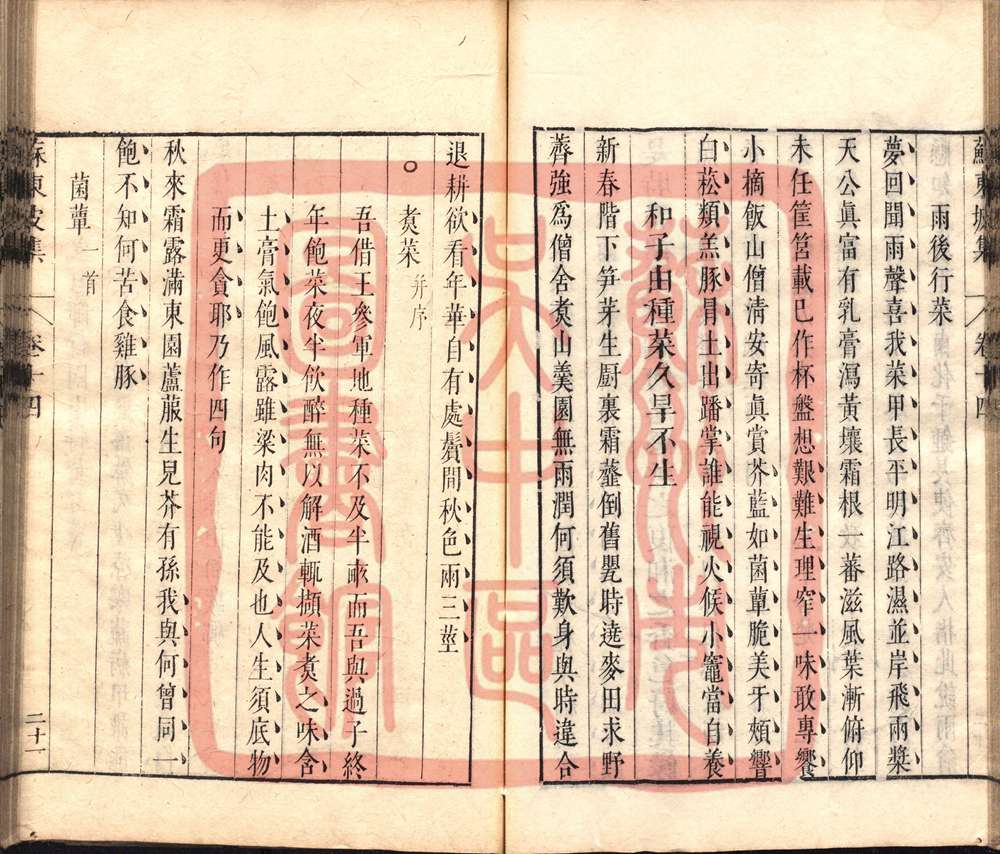 蘇東坡集 卷十四
雨後行菜
夢回聞雨聲喜我菜甲長平明江路濕並岸飛雨槳
天公眞富有乳膏瀉黃壤霜根一蕃滋風葉漸俯仰
未任筐筥載已作杯盤想艱難生理窄一味敢專饗
小摘飯山僧淸安寄眞賞芥藍如菌蕈脆美牙頰響
白菘類羔豚冒土出蹯掌誰能視火候小竈當自養
和子由種菜久旱不生
新春階下筍芽生厨裏霜虀倒舊甖時遶麥田求野
薺強爲僧舍煑山羹園無雨潤何須歎身與時違合
退耕欲看年華自有處鬢間秋色兩三莖
煑菜 并序
吾借王參軍地種菜不及半畝而吾與過子終
年飽菜夜半飲醉無以解酒輒擷菜煑之味含
土膏氣飽風露雖粱肉不能及也人生須底物
而更貪耶乃作四句
秋來霜露滿東園蘆菔生兒芥有孫我與何曾同一
飽不知何苦食雞豚
菌蕈一首
蘇東坡集 卷十四 二十一
蘇州市
吳中區
圖書館